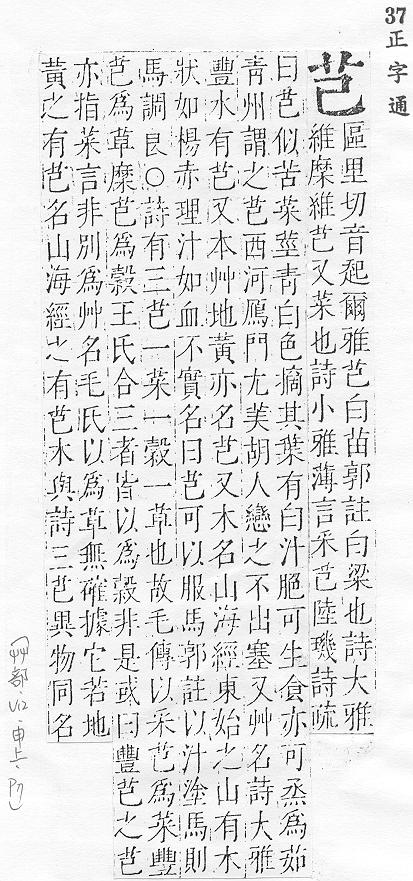 37正字通
芑
區里切音起爾雅芑白苗郭註白粱也詩大雅
維糜維芑又菜也詩小雅薄言采芑陸璣詩疏
曰芑似苦菜莖青白色摘其葉有白汁脃可生食亦可烝爲茹
青州謂之芑西河鴈門尤美胡人戀之不出塞又艸名詩大雅
豐水有芑又本艸地黃亦名芑又木名山海經東始之山有木
狀如楊赤理汁如血不實名曰芑可以服馬郭註以汁塗馬則
馬調良○詩有三芑一菜一穀一草也故毛傳以采芑爲菜豐
芑爲草糜芑爲穀王氏合三者皆以爲穀非是或曰豐芑之芑
亦指菜言非別爲艸名毛氏以爲草無確據它若地
黃之有芑名山海經之有芑木與詩三芑異物同名
(艸部 V12·申上·P7)